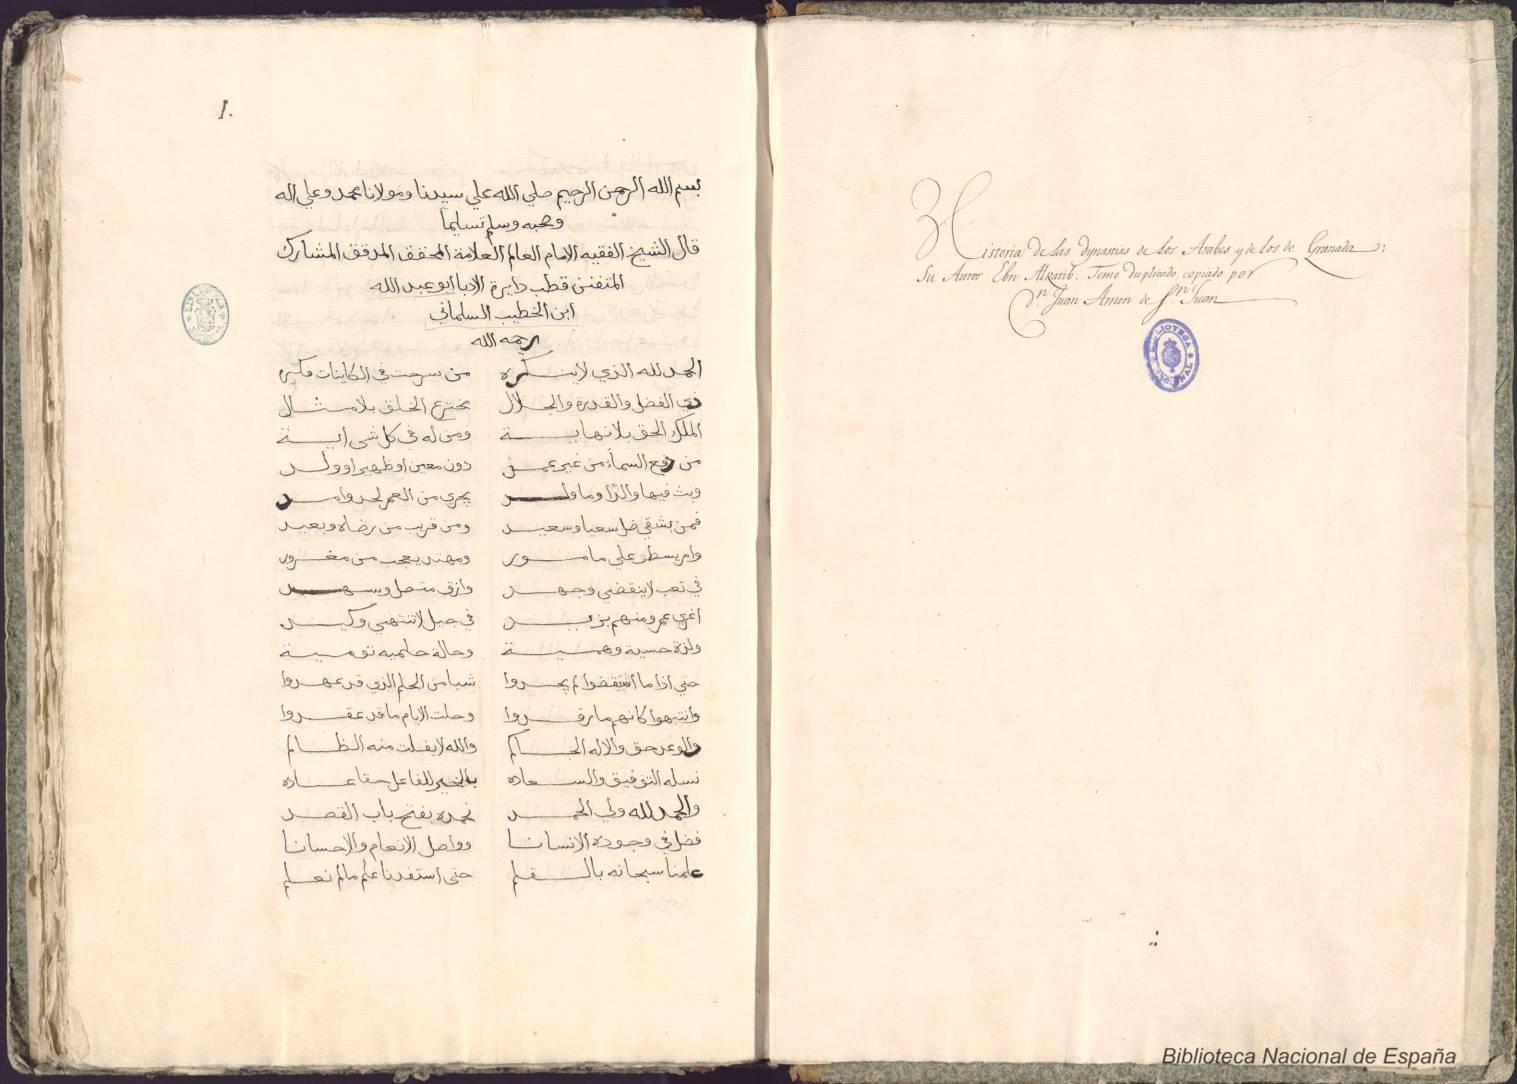 Historia de las dynastias de los Arabes y de los de Granada:
Su Autor Ebn Alzatib. Tomo duplicado, copiado por
Dn Juan Amon de Sn Juan
1.
بسم الله الرحمن الرحيم صلي الله علي سيدنا ومولانا محمد وعلي اله
وصحبه وسلم تسليما
قال الشيخ الفقيه الامام العالم العلامة المحقق المدقق المشارك
المتفنن قطب دايرة الادبا ابو عبد الله
ابن الخطيب السلماني
رحمه الله
الحمد لله الذي لا ينكره من سرحت في الكاينات فكره
ذي الفضل والقدرة والجلال مخترع الخلق بلا مثال
الملك الحق بلا نهاية ومن له في كل شي اية
من رفع السماء من غير عمد دون معين او ظهير او ولد
وبث فيها والدا وما ولد يجري من العمر لحد وامد
فمن شقي ضل سعيا وسعيد ومن قريب من رضاه وبعيد
وامر يسطر علي مامور ومهتد يعجب من مغرور
في تعب لا ينقضي وجهد وارق متصل وسهد
اغري عمر ومنهم بزيد في حيل لا تنتهي وكيد
ولذة حسية وهمية وحالة حلمية نومية
حتي اذا ما استيقضوا لم يجدوا شيا من الحلم الذي قد عهدوا
وانتبهوا كانهم ما رقدوا وحلت الايام ما قد عقدوا
والوعد حق والاله الحاكم والله لا يفلت منه الظالم
نسله التوفيق والسعاده بالخير للفاعل حقا عاده
والحمد لله ولي الحمد نحمده بفتح باب القصد
فضل في وجوده الانسانا وواصل الانعام والاحسانا
علمنا سبحانه بالقلم حتى استفدنا علم ما لم نعلم
BIBLIOTECA
Biblioteca Nacional de España